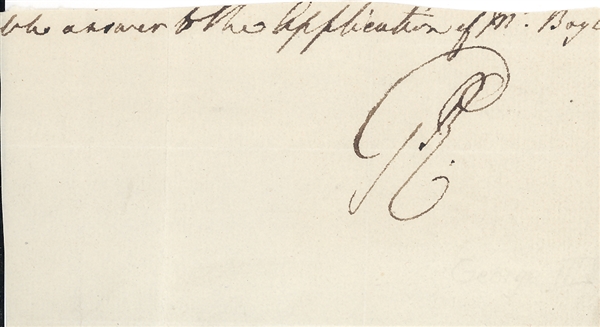 answer to the Application of Mr. Boyl
GR.
George III